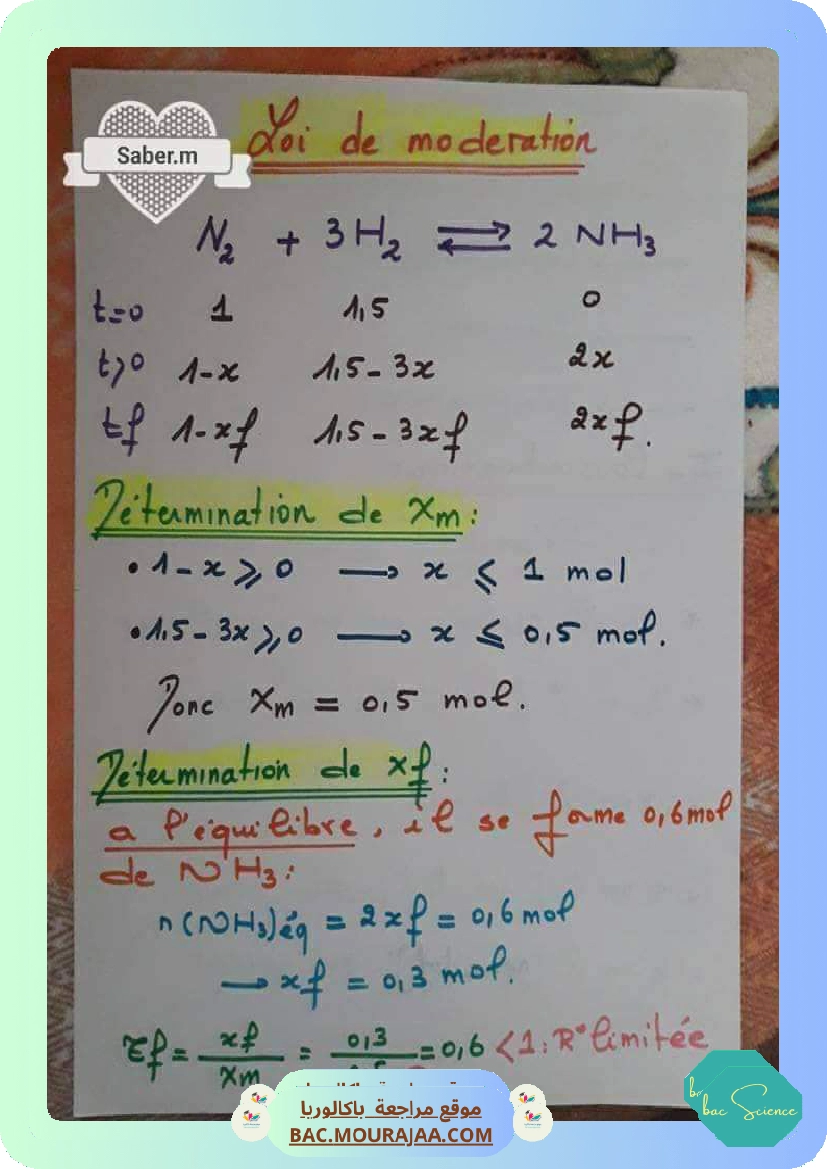 Saber.m
Loi de moderation
N₂ + 3H₂ ⇌ 2 NH₃
t=0 1 1,5 0
t>0 1-x 1,5-3x 2x
tf 1-xf 1,5-3xf 2xf.
Détermination de xm:
• 1-x ⩾ 0 → x ⩽ 1 mol
• 1,5-3x ⩾ 0 → x ⩽ 0,5 mol.
Donc Xm = 0,5 mol.
Détermination de xf:
a l'équilibre, il se forme 0,6mol
de NH₃:
n(NH₃)éq = 2xf = 0,6 mol
→ xf = 0,3 mol.
τf = xf/xm = 0,3/ = 0,6 < 1: R° limitée
موقع مراجعة باكالوريا
BAC.MOURAJAA.COM
bac Science